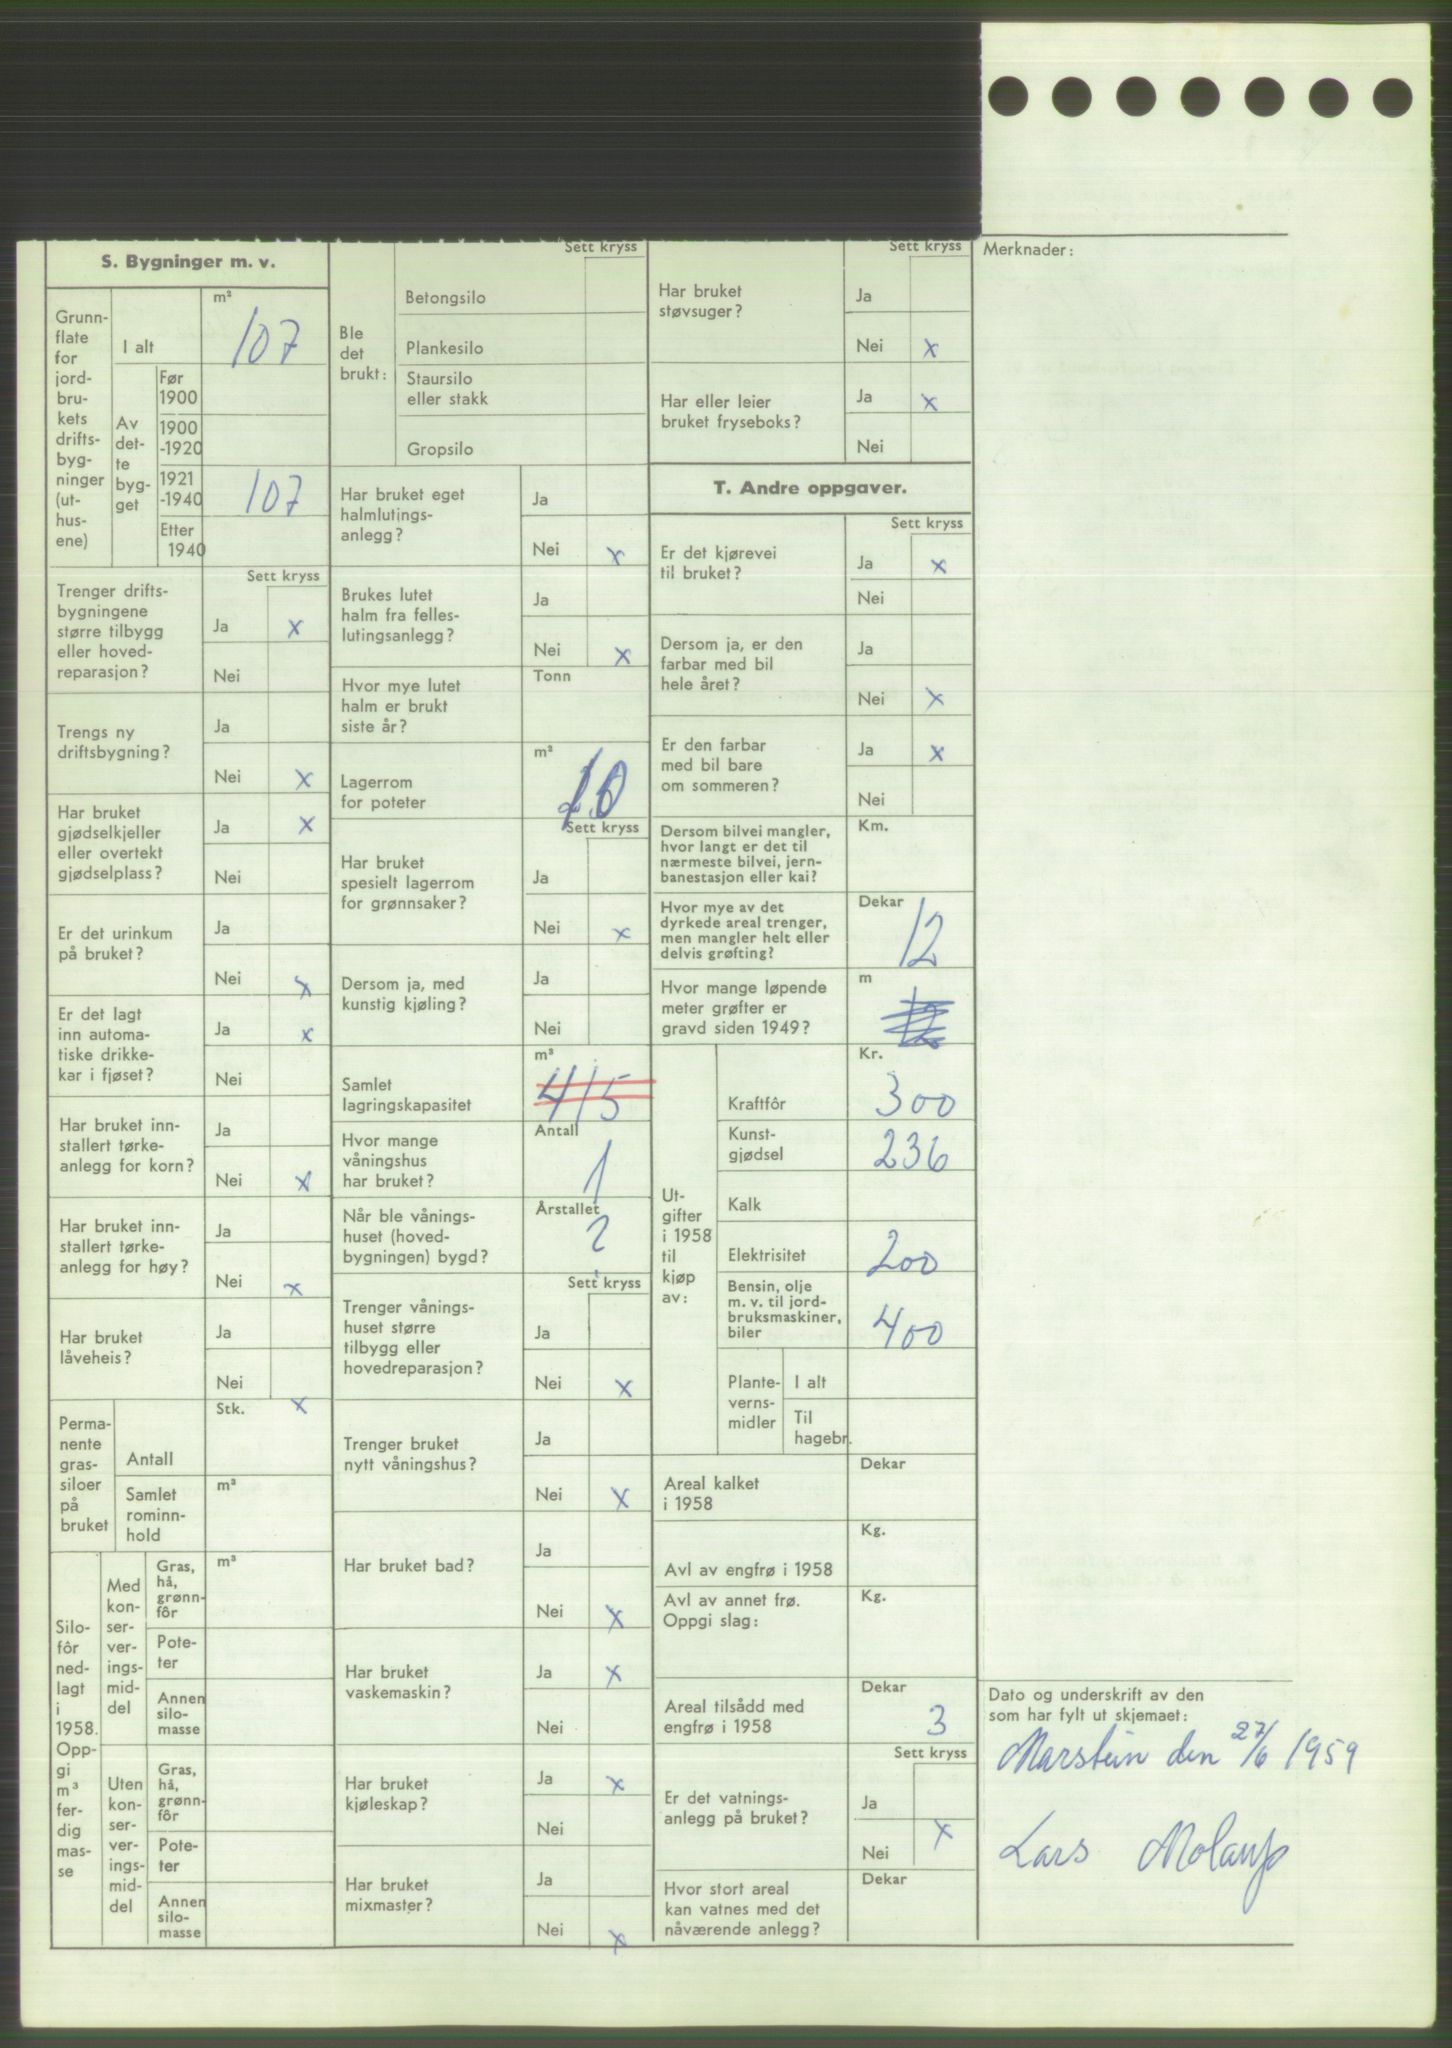 S. Bygninger m. v.
Grunn-
flate
for
jord-
bru-
kets
drifts-
byg-
ninger
(ut-
hus-
ene)
I alt
m²
107
Av
det-
te
byg-
get
Før
1900
1900
-1920
1921
-1940
107
Etter
1940
Sett kryss
Trenger drifts-
bygningene
større tilbygg
eller hoved-
reparasjon?
Ja x
Nei
Trengs ny
driftsbygning?
Ja
Nei x
Har bruket
gjødselkjeller
eller overtekt
gjødselplass?
Ja x
Nei
Er det urinkum
på bruket?
Ja
Nei x
Er det lagt
inn automa-
tiske drikke-
kar i fjøset?
Ja x
Nei
Har bruket inn-
stallert tørke-
anlegg for korn?
Ja
Nei x
Har bruket inn-
stallert tørke-
anlegg for høy?
Ja
Nei x
Har bruket
låveheis?
Ja
Nei
x
Perma-
nente
gras-
siloer
på
bruket
Antall
Stk.
Samlet
rominn-
hold
m³
Silo-
fôr
ned-
lagt
i
1958.
Opp-
gi
m³
fer-
dig
mas-
se
Med
kon-
ser-
ver-
ings-
mid-
del
Gras,
hå,
grønn-
fôr
m³
Pote-
ter
Annen
silo-
masse
Uten
kon-
ser-
ver-
ings-
mid-
del
Gras,
hå,
grønn-
fôr
Pote-
ter
Annen
silo-
masse
Sett kryss
Ble
det
brukt:
Betongsilo
Plankesilo
Staursilo
eller stakk
Gropsilo
Har bruket eget
halmlutings-
anlegg?
Ja
Nei x
Brukes lutet
halm fra felles-
lutingsanlegg?
Ja
Nei x
Hvor mye lutet
halm er brukt
siste år?
Tonn
Lagerrom
for poteter
m³
Sett kryss
Har bruket
spesielt lagerrom
for grønnsaker?
Ja
Nei x
Dersom ja, med
kunstig kjøling?
Ja
Nei
Samlet
lagringskapasitet
m³
415
Hvor mange
våningshus
har bruket?
Antall
1
Når ble vånings-
huset (hoved-
bygningen) bygd?
Årstallet
?
Sett kryss
Trenger vånings-
huset større
tilbygg eller
hovedreparasjon?
Ja
Nei x
Trenger bruket
nytt våningshus?
Ja
Nei x
Har bruket bad?
Ja
Nei x
Har bruket
vaskemaskin?
Ja x
Nei
Har bruket
kjøleskap?
Ja x
Nei
Har bruket
mixmaster?
Ja
Nei x
Sett kryss
Har bruket
støvsuger?
Ja
Nei x
Har eller leier
bruket fryseboks?
Ja x
Nei
T. Andre oppgaver.
Sett kryss
Er det kjørevei
til bruket?
Ja x
Nei
Dersom ja, er den
farbar med bil
hele året?
Ja
Nei x
Er den farbar
med bil bare
om sommeren?
Ja x
Nei
Dersom bilvei mangler,
hvor langt er det til
nærmeste bilvei, jern-
banestasjon eller kai?
Km.
Hvor mye av det
dyrkede areal trenger,
men mangler helt eller
delvis grøfting?
Dekar
12
Hvor mange løpende
meter grøfter er
gravd siden 1949?
m
12
Ut-
gifter
i 1958
til
kjøp
av:
Kr.
Kraftfôr
300
Kunst-
gjødsel
236
Kalk
Elektrisitet
200
Bensin, olje
m. v. til jord-
bruksmaskiner,
biler
400
Plante-
verns-
midler
I alt
Til
hagebr.
Areal kalket
i 1958
Dekar
Avl av engfrø i 1958
Kg.
Avl av annet frø.
Oppgi slag:
Kg.
Areal tilsådd med
engfrø i 1958
Dekar
3
Sett kryss
Er det vatnings-
anlegg på bruket?
Ja
Nei x
Hvor stort areal
kan vatnes med det
nåværende anlegg?
Dekar
Merknader:
Dato og underskrift av den
som har fylt ut skjemaet:
Marstein den 27/6 1959
Lars